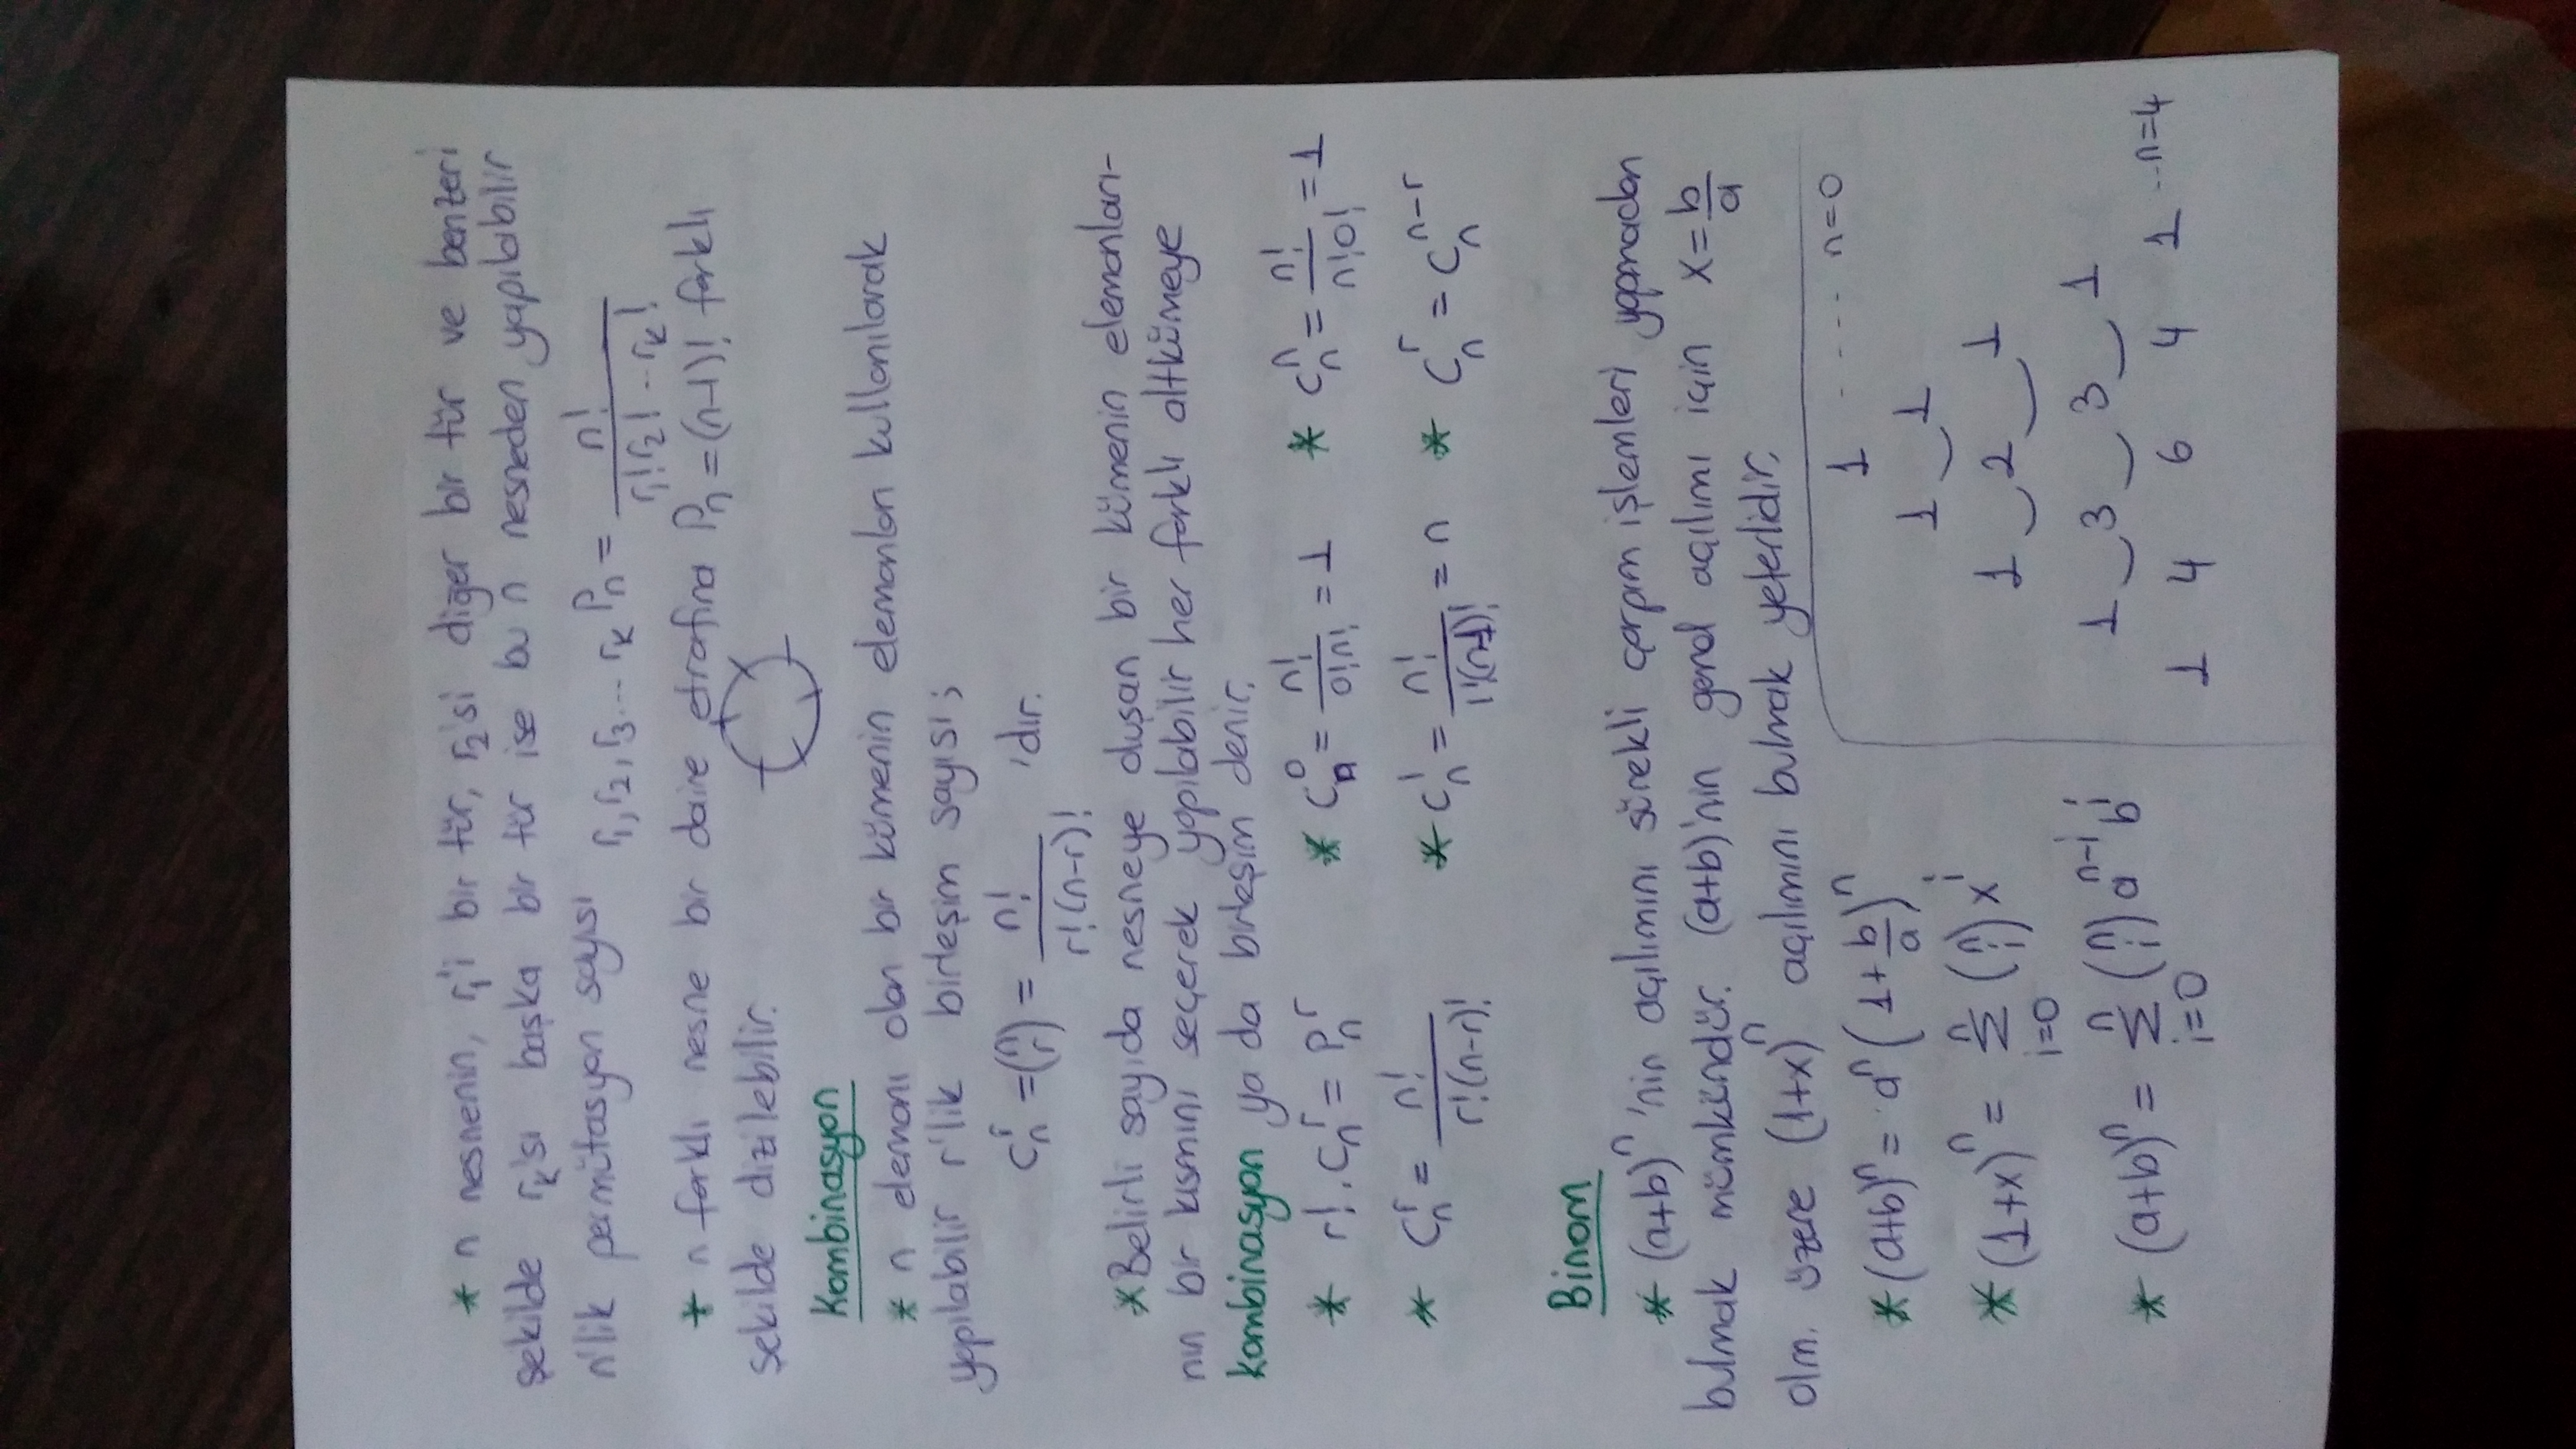 * n nesnenin, r₁'i bir tür, r₂'si diğer bir tür ve benzeri
şekilde rₖ'sı başka bir tür ise bu n nesneden yapılabilir
n'lik permütasyon sayısı r₁, r₂, r₃... rₖ Pₙ = n! / r₁! r₂! ... rₖ!
* n farklı nesne bir daire etrafına Pₙ = (n-1)! farklı
şekilde dizilebilir.
Kombinasyon
* n elemanı olan bir kümenin elemanları kullanılarak
yapılabilir r'lik birleşim sayısı;
Cₙʳ = (n r) = n! / r!(n-r)! 'dır.
*Belirli sayıda nesneye oluşan bir kümenin elemanları-
nın bir kısmını seçerek yapılabilir her farklı altkümeye
kombinasyon ya da birleşim denir.
* r! . Cₙʳ = Pₙʳ * Cₙ⁰ = n! / 0!n! = 1 * Cₙⁿ = n! / n!0! = 1
* Cₙʳ = n! / r!(n-r)! * Cₙ¹ = n! / 1!(n-1)! = n * Cₙʳ = Cₙⁿ⁻ʳ
Binom
* (a+b)ⁿ 'nin açılımını sürekli çarpım işlemleri yapmadan
bulmak mümkündür. (a+b)'nin genel açılımı için x = b/a
olm. üzere (1+x)ⁿ açılımını bulmak yeterlidir.
* (a+b)ⁿ = aⁿ (1 + b/a)ⁿ
* (1+x)ⁿ = n Σ i=0 (n i) xⁱ
* (a+b)ⁿ = n Σ i=0 (n i) aⁿ⁻ⁱ bⁱ
1 ---- n=0
1 1
1 2 1
1 3 3 1
1 4 6 4 1 ..n=4